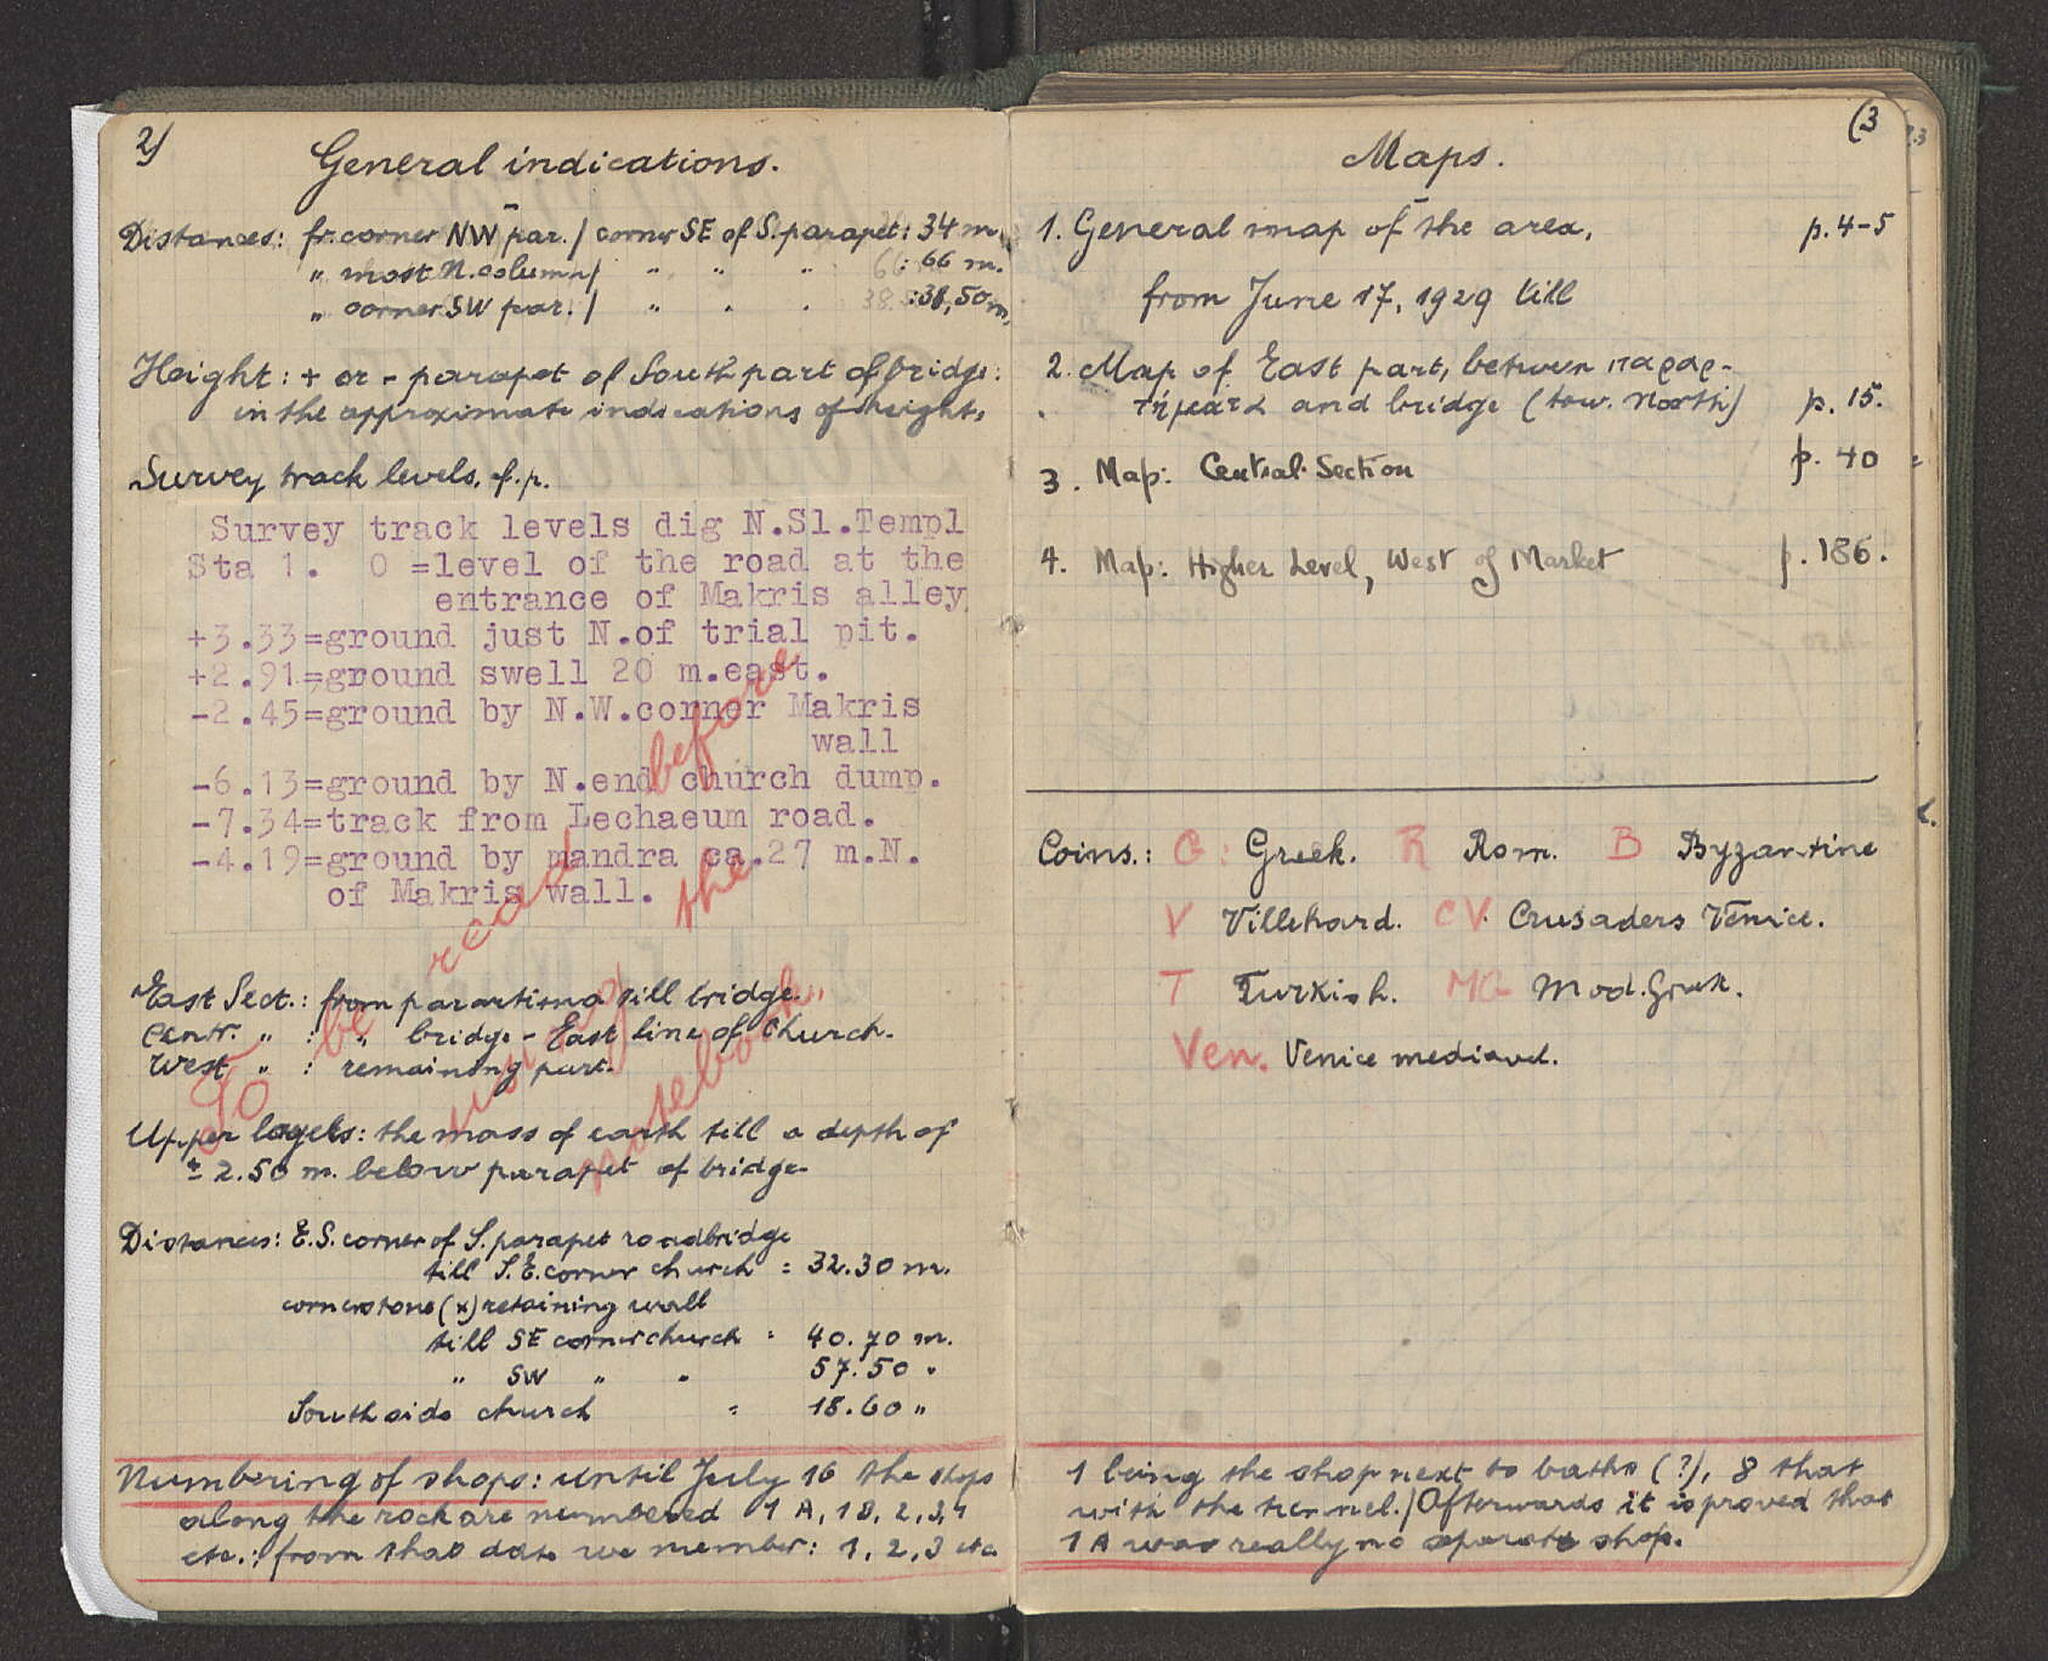 2)
General indications.
Distances: fr. corner NW par. / corner SE of S. parapet: 34 m.
" most N. column / " " " : 66 m.
" corner SW par. / " " " : 38,50 m.
Height: + or - parapet of South part of bridge:
in the approximate indications of height.
Survey track levels. cf. p.
Survey track levels dig N.Sl.Templ
Sta 1. 0 =level of the road at the
entrance of Makris alley
+3.33=ground just N.of trial pit.
+2.91=ground swell 20 m.east.
-2.45=ground by N.W.corner Makris
wall
-6.13=ground by N.end church dump.
-7.34=track from Lechaeum road.
-4.19=ground by mandra ca.27 m.N.
of Makris wall.
To be read before
using the
notebook
East Sect.: from parartima till bridge.
Centr. " : " bridge - East line of Church.
West " : remaining part.
Upper layers: the mass of earth till a depth of
± 2.50 m. below parapet of bridge
Distances: E.S. corner of S. parapet roadbridge
till S.E. corner church = 32.30 m.
cornerstone (x) retaining wall
till SE corner church = 40.70 m.
" SW " " 57.50 "
South side church = 18.60 "
Numbering of shops: until July 16 the shops
along the rock are numbered 1 A, 1 B, 2, 3, 4
etc.: from that date we number: 1, 2, 3 etc.
(3
Maps.
1. General map of the area, p. 4-5
from June 17, 1929 till
2. Map of East part, between παραρ-
τήματα and bridge (tow. North) p. 15.
3. Map: Central Section p. 40
4. Map: Higher Level, West of Market p. 186.
Coins.: G: Greek. R Rom. B Byzantine
V Villehard. CV. Crusaders Venice.
T Turkish. MG Mod. Greek.
Ven. Venice mediaevl.
1 being the shop next to baths (?), 8 that
with the tunnel. / Afterwards it is proved that
1 A was really no separate shop.